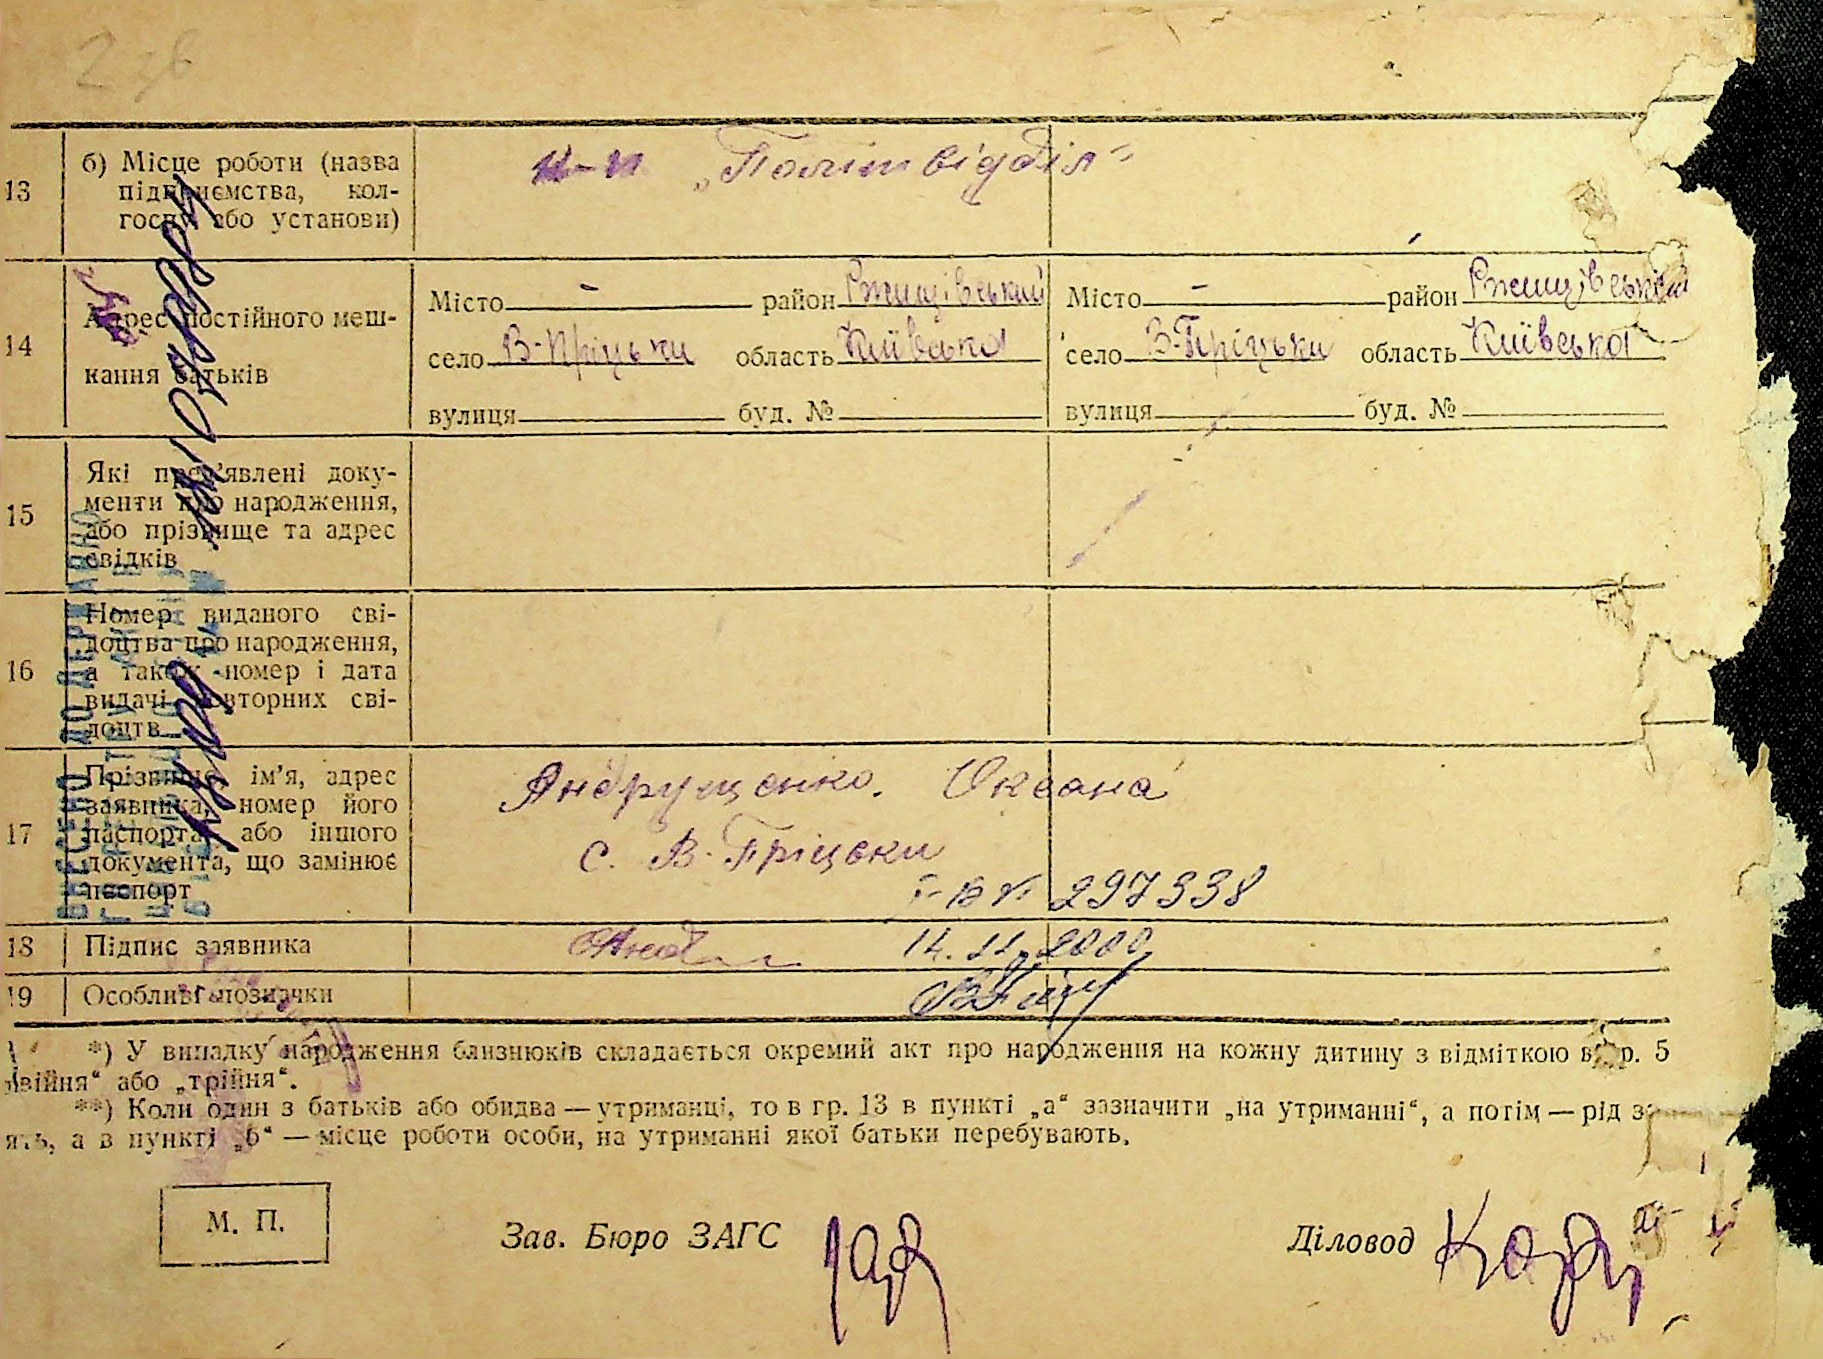 13 б) Місце роботи (назва
підприємства, кол-
госпу або установи)
к-п „Політвідділ"
14 Адрес постійного меш-
кання батьків
Місто – район Ржищівський
село В-Пріцьки область Київська
вулиця буд. №
Місто – район Ржищівський
село В-Пріцьки область Київська
вулиця буд. №
15 Які пред'явлені доку-
менти про народження,
або прізвище та адрес
свідків
16 Номер виданого сві-
доцтва про народження,
а також номер і дата
видачі повторних сві-
доцтв
17 Прізвище, ім'я, адрес
заявника, номер його
паспорта, або іншого
документа, що замінює
паспорт
Андрущенко. Оксана
с. В-Гріцьки
297338
18 Підпис заявника
14.11.2000
19 Особливі позначки
*) У випадку народження близнюків складається окремий акт про народження на кожну дитину з відміткою в гр. 5
„двійня“ або „трійня“.
**) Коли один з батьків або обидва — утриманці, то в гр. 13 в пункті „а“ зазначити „на утриманні“, а потім — рід
а в пункті „б“ — місце роботи особи, на утриманні якої батьки перебувають.
М. П.
Зав. Бюро ЗАГС
Діловод
ВНЕСЕНО ДО ДЕРЖАВНО